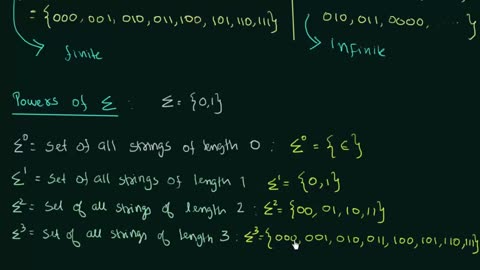 = {000, 001, 010, 011, 100, 101, 110, 111}
010, 011, 0000, ..... }
finite
Infinite
Powers of Σ : Σ = {0,1}
Σ⁰ = Set of all strings of length 0 : Σ⁰ = {ϵ}
Σ¹ = Set of all strings of length 1 Σ¹ = {0,1}
Σ² = Set of all strings of length 2 : Σ² = {00, 01, 10, 11}
Σ³ = Set of all strings of length 3 : Σ³ = {000, 001, 010, 011, 100, 101, 110, 111}